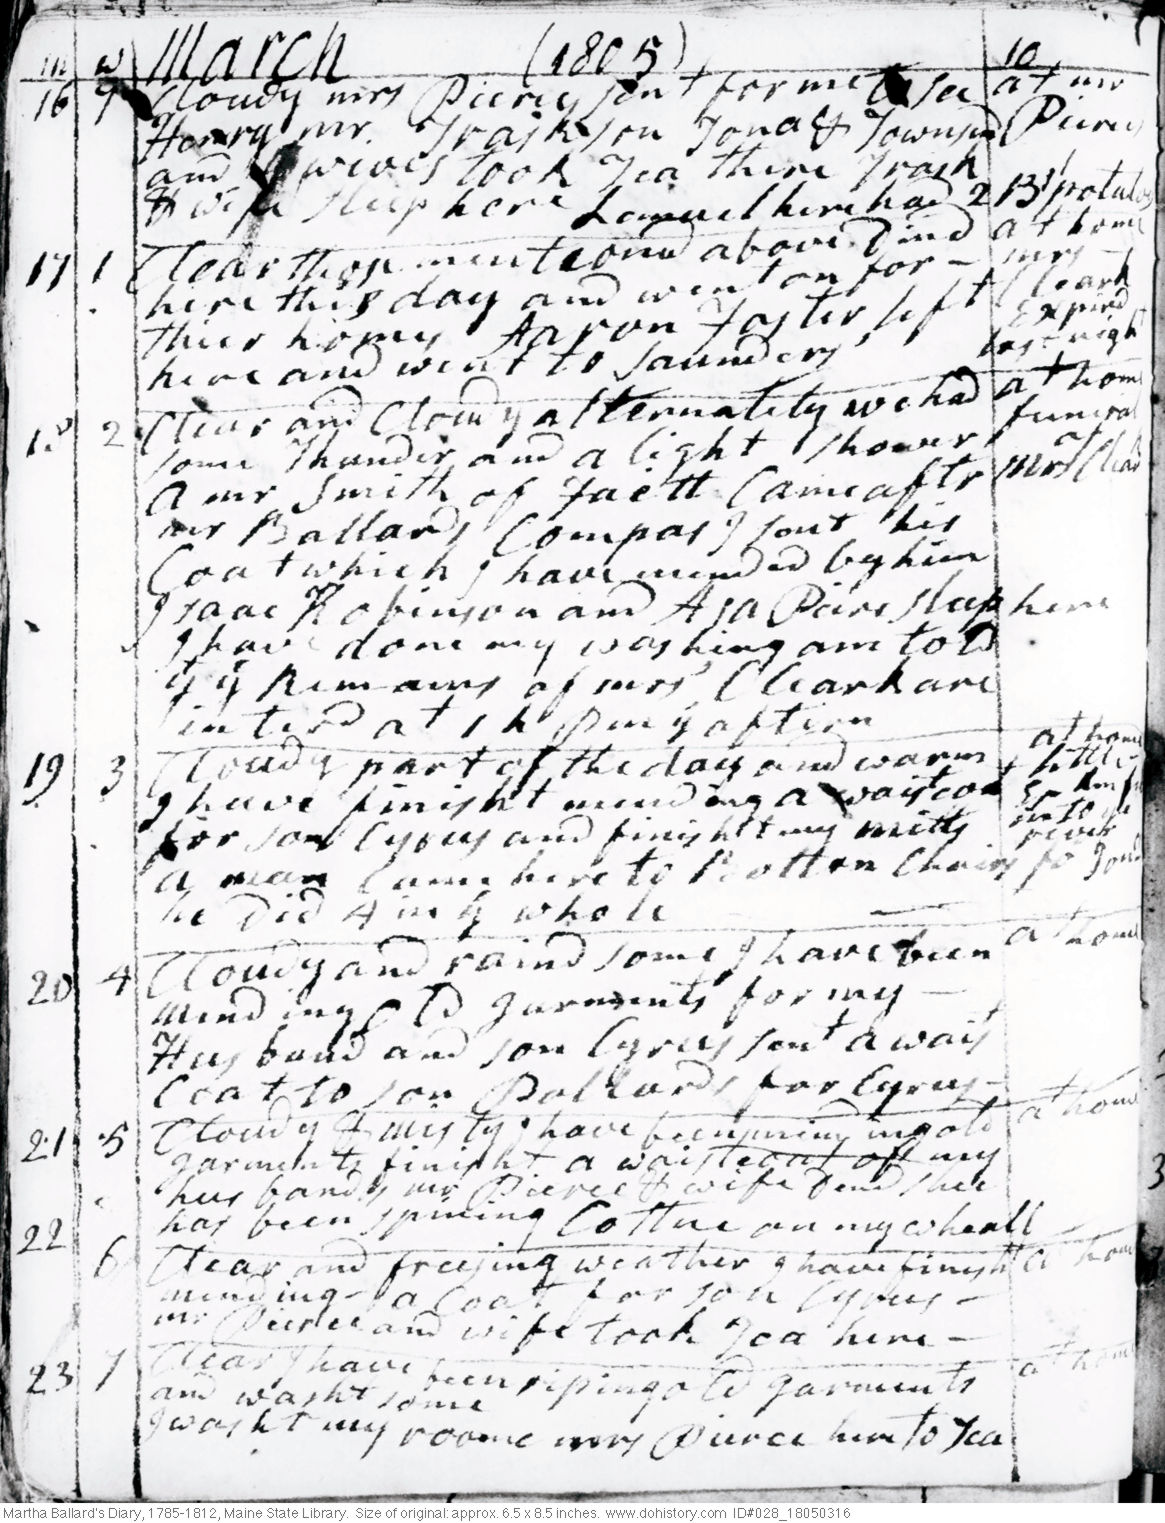 m w March (1805) 10
16 7 Cloudy mrs Pierce sent for me to see at mr
Henry mr Trask son Jona & Townsd Pierces
and wives took Tea there Trask
& wife sleep here Lemuel here had 2 Bl potatoes
17 1 Clear thos mentiond above Dind at home
here this day and went on for – mrs
thier homes Aaron Foster left Cleark
here and went to Saunders Expird
last night
18 2 Clear and Cloudy alternately we had at home
some Thunder and a light shower funeral of
a mr Smith of Faett Came aftr Mrs Cleark
mr Ballards Compas I sent his
Coat which I have mended by him
Isaac Robinson and Asa Pairs sleep here
I have done my washing am told
yt ye Remains of mrs Cleark are
interd at 1 h pm ys aftern
19 3 Cloudy part of the day and warm at home
I have finisht mending a waistcoat little
for son Cyrus and finisht my mitts into ye
river
a man Came here to Bottom Chairs for Jona
he Did 4 in ye whole
20 4 Cloudy and raind some I have been at home
mending old garments for my –
Husband and son Cyrus sent a wais
Coat to son Pollards for Cyrus –
21 5 Cloudy & misty I have been mending old at home
garments finisht a waistcoat of my
husbands mr Pierce & wife Dind shee
has been spining Cottne on my wheall
22 6 Clear and freesing weather I have finisht at home
mending a Coat for son Cyrus –
mr Pierce and wife took Tea here –
23 7 Clear I have been riping old garments at home
and washt some
I washt my roome mrs Pierce here to Tea
Martha Ballard's Diary, 1785-1812, Maine State Library. Size of original: approx. 6.5 x 8.5 inches. www.dohistory.com ID#028_18050316